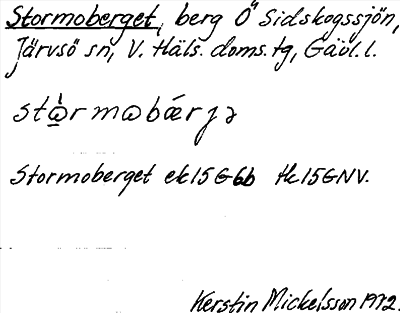 Stormoberget, berg Ö Sidskogssjön,
Järvsö sn, V. Häls. doms. tg, Gävl. l.
Stormoberget ek 15 G 6b tk 15 G NV.
Kerstin Mickelsson 1972.